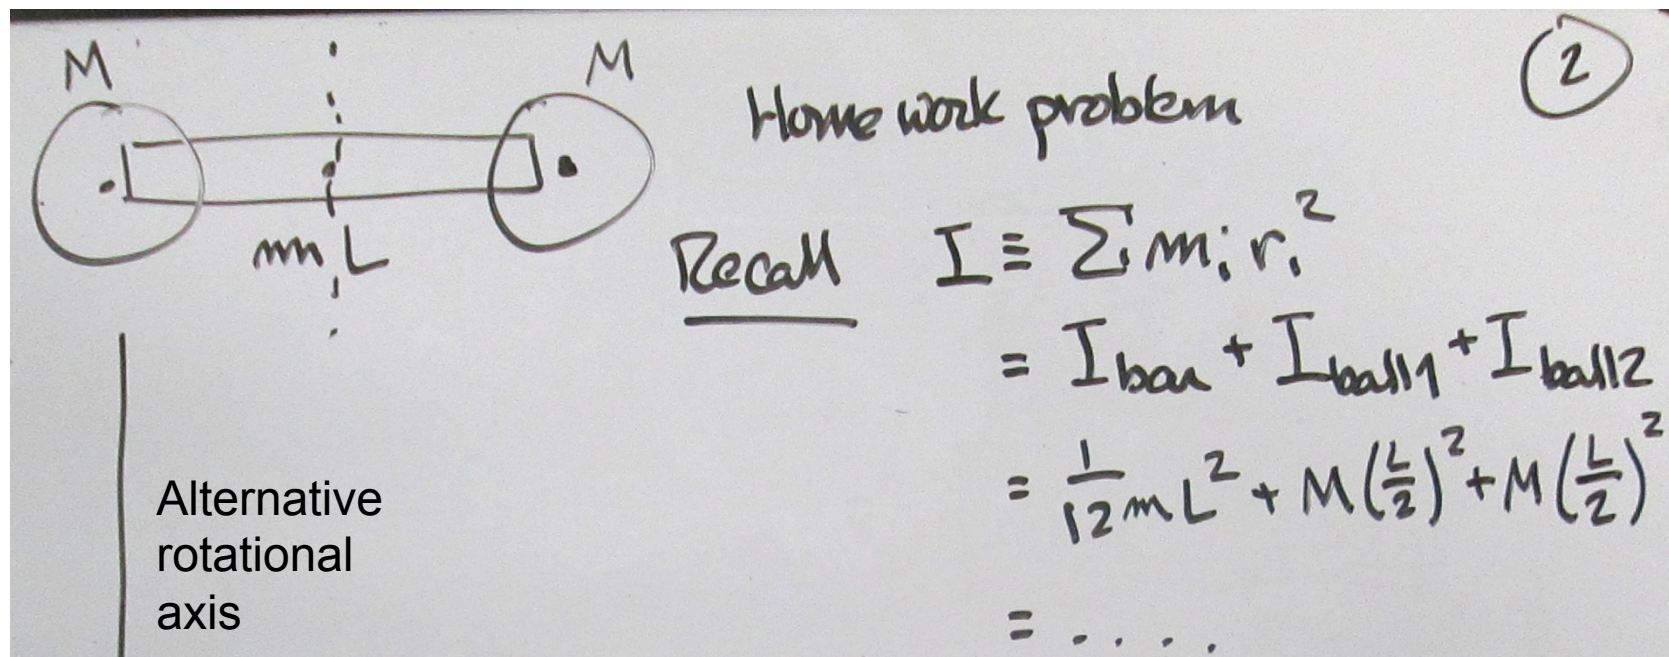 M
M
2
Homework problem
m, L
Recall I ≡ Σ mᵢ rᵢ²
= I bar + I ball1 + I ball2
= 1/12 m L² + M (L/2)² + M (L/2)²
= . . . .
Alternative
rotational
axis